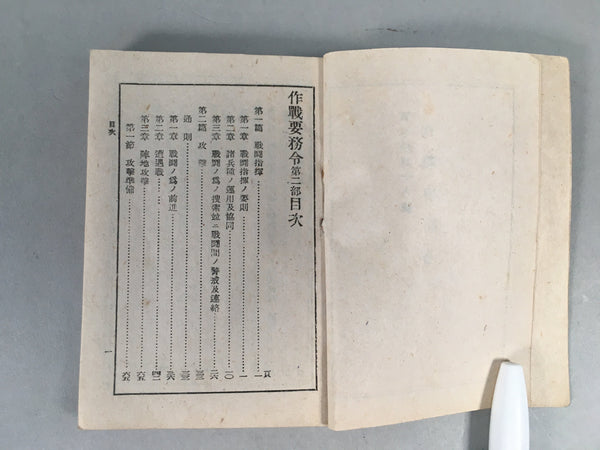 作戰要務令第二部目次
頁
第一篇 戰鬪指揮……一
第一章 戰鬪指揮ノ要則……一
第二章 諸兵種ノ運用及協同……一〇
第三章 戰鬪ノ爲ノ搜索竝ニ戰鬪間ノ警戒及連絡
第二篇 攻擊
通則
第一章 戰鬪ノ爲ノ前進
第二章 遭遇戰
第三章 陣地攻擊
第一節 攻擊準備
目次
一